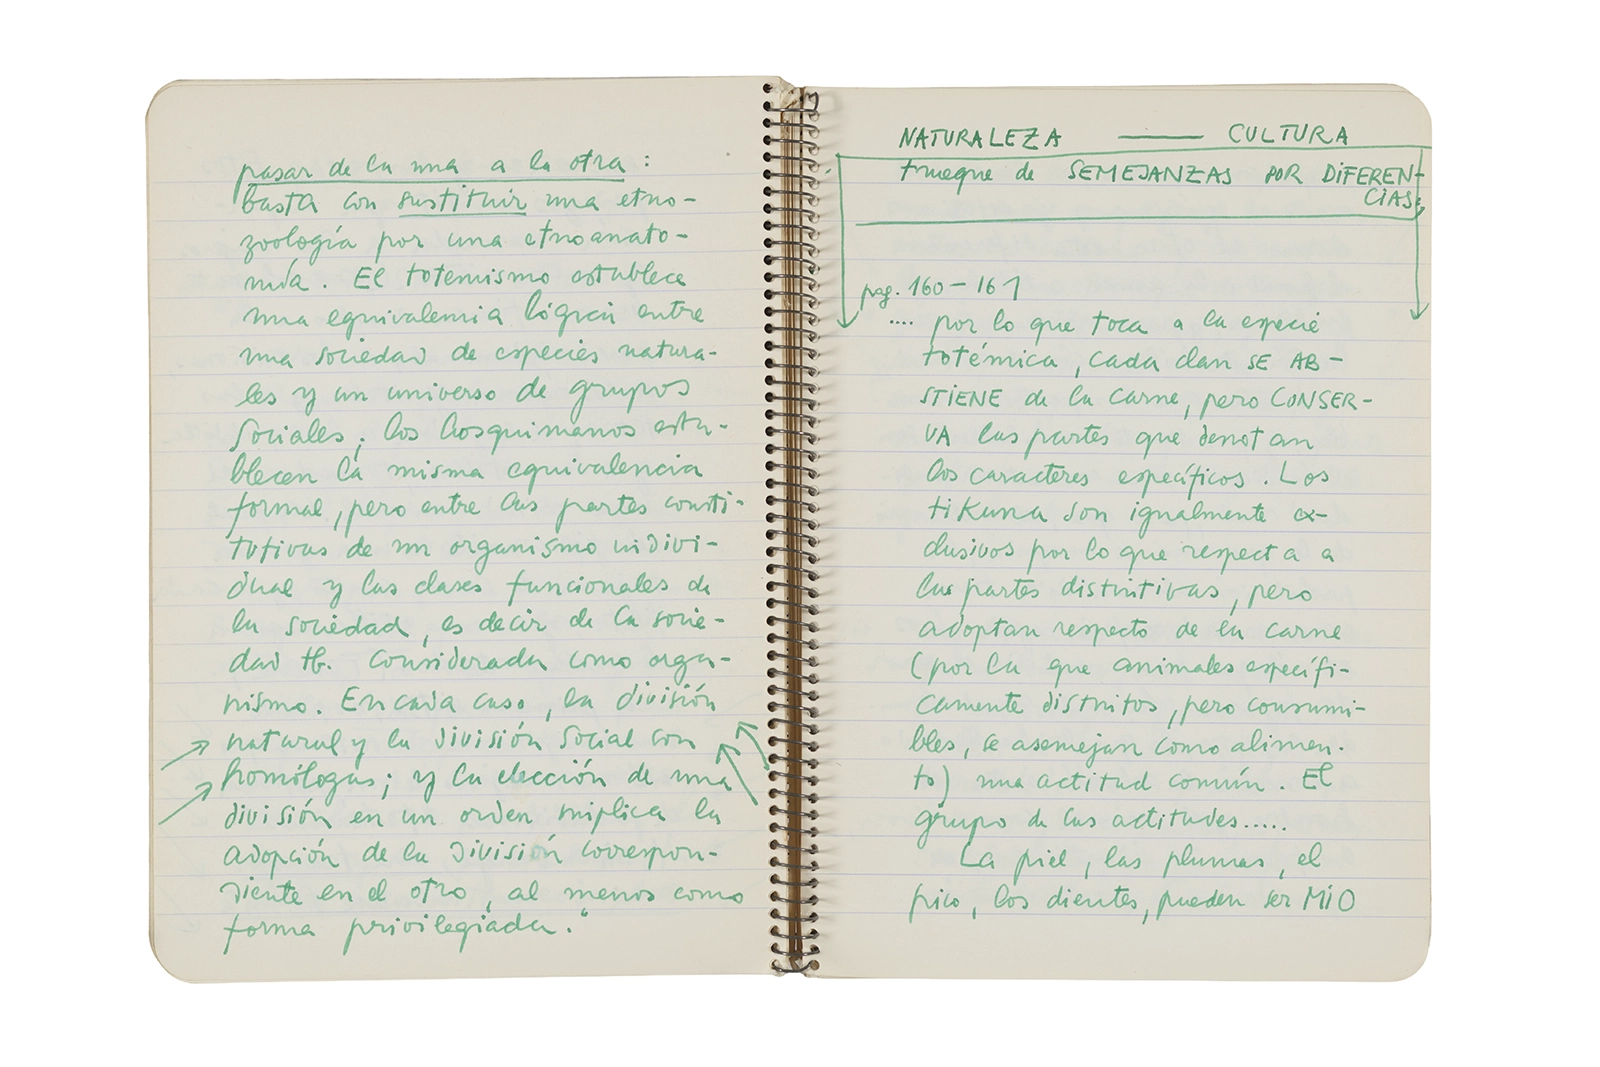 pasar de la una a la otra :
basta con sustituir una etno-
zoología por una etnoanato-
mía. El totemismo establece
una equivalencia lógica entre
una sociedad de especies natura-
les y un universo de grupos
sociales; los bosquimanos esta-
blecen la misma equivalencia
formal, pero entre las partes consti-
tutivas de un organismo indivi-
dual y las clases funcionales de
la sociedad, es decir de la socie-
dad tb. considerada como orga-
nismo. En cada caso, la división
natural y la división social son
homólogas; y la elección de una
división en un orden implica la
adopción de la división correspon-
diente en el otro, al menos como
forma privilegiada."
NATURALEZA —— CULTURA
trueque de SEMEJANZAS POR DIFEREN-
CIAS.
pag. 160-161
.... por lo que toca a la especie
totémica, cada clan SE ABS-
TIENE de la carne, pero CONSER-
VA las partes que denotan
los caracteres específicos. Los
tikuna son igualmente ex-
clusivos por lo que respecta a
las partes distintivas, pero
adoptan respecto de la carne
(por la que animales específi-
camente distintos, pero consumi-
bles, se asemejan como alimen-
to) una actitud común. El
grupo de las actitudes.....
La piel, las plumas, el
pico, los dientes, pueden ser MIO